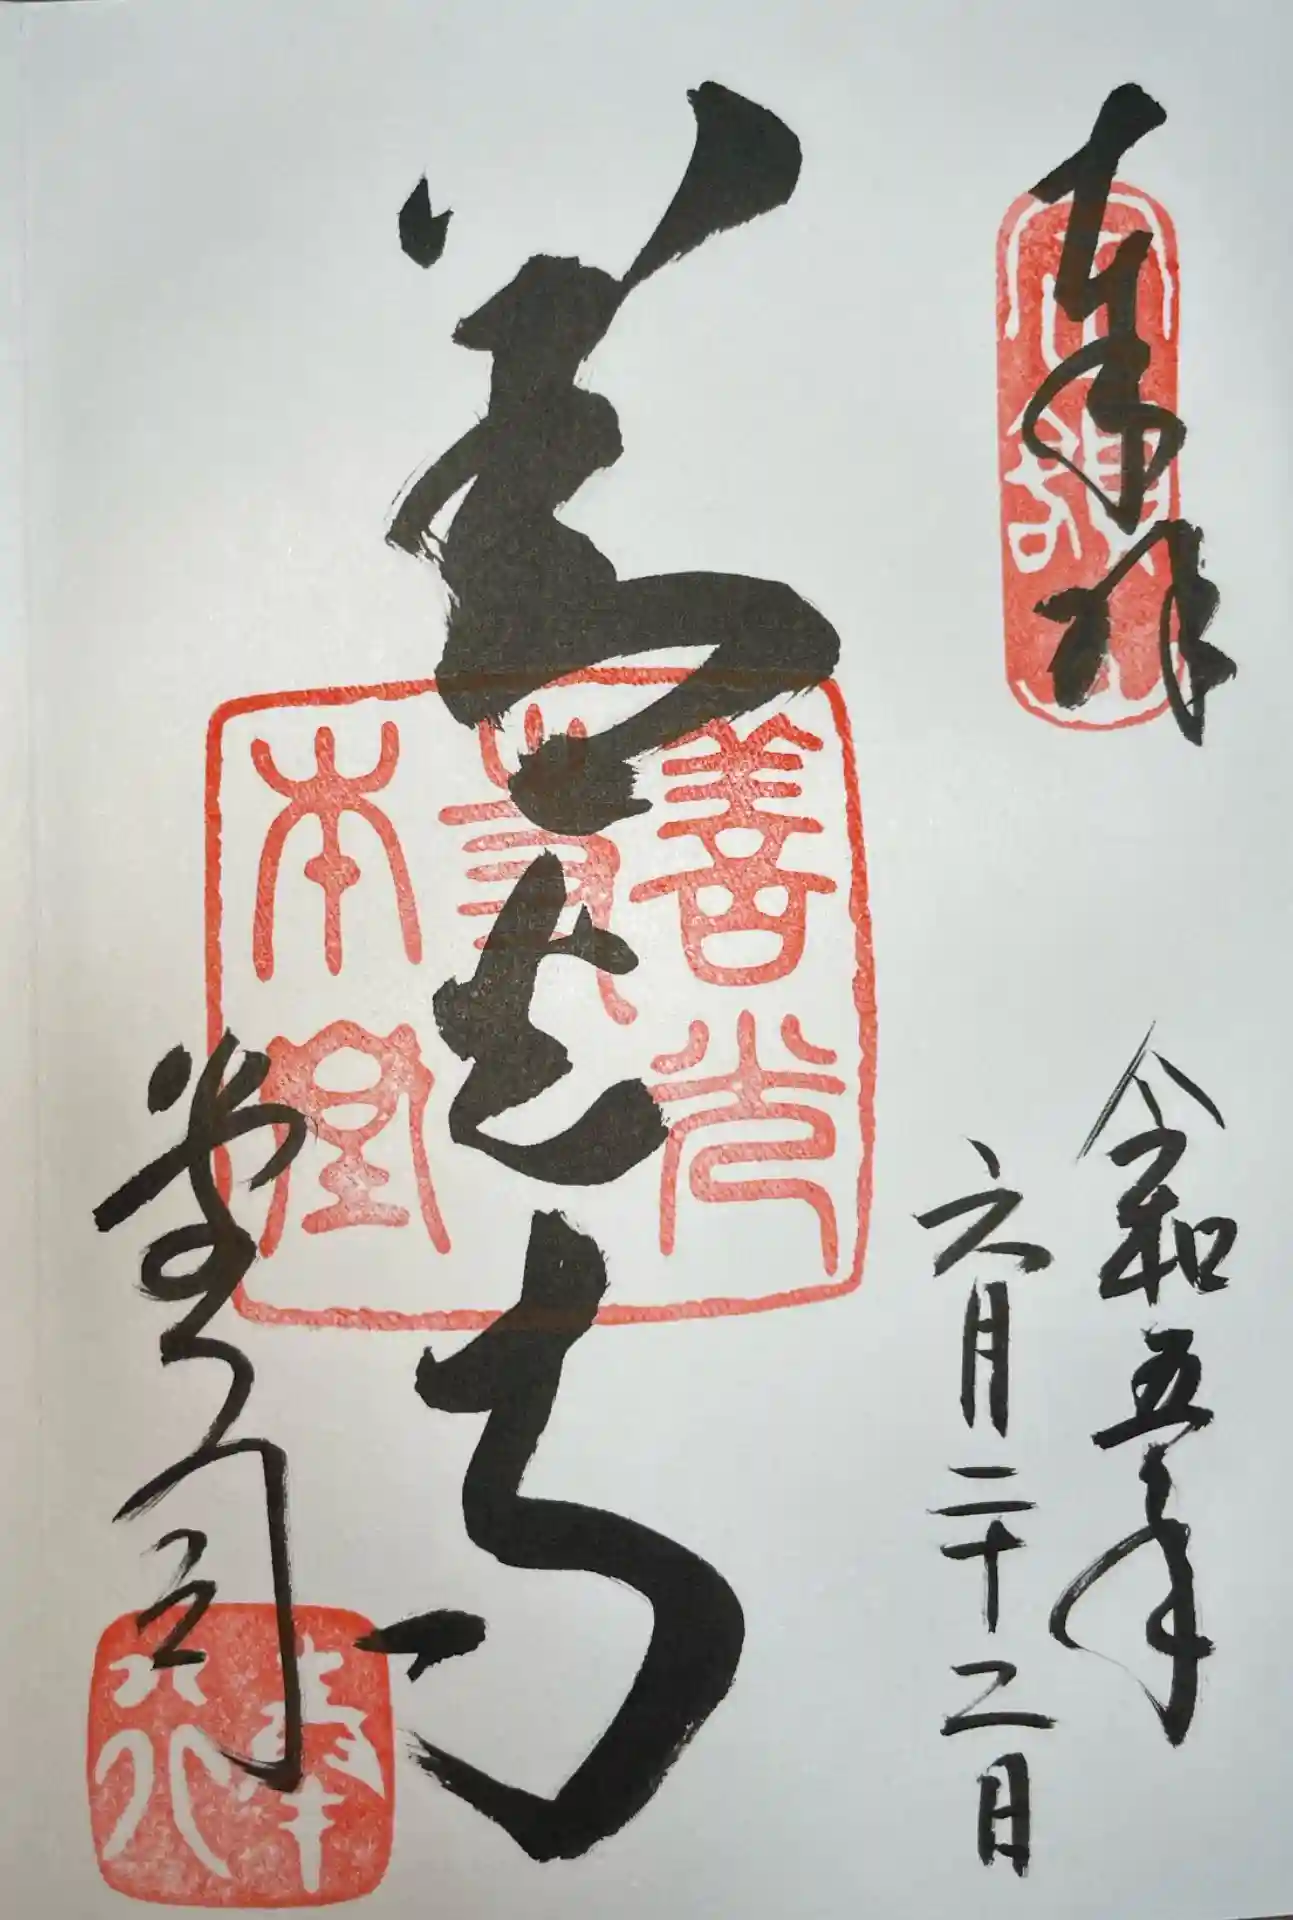 奉拝
令和五年
六月二十二月
善光寺
堂司
善光
寺
本堂